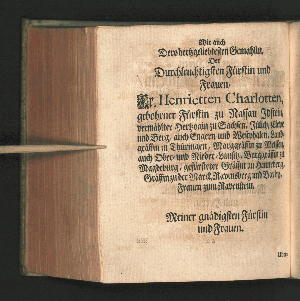 Wie auch
Dero hertzgeliebtesten Gemahlin,
Der
Durchleuchtigsten Fürstin und
Frauen,
Fr. Henrietten Charlotten,
gebohrner Fürstin zu Nassau Idstein,
vermählter Hertzogin zu Sachsen, Jülich, Cleve
und Berg, auch Engern und Westphalen, Land-
gräfin in Thüringen, Marggräfin zu Meissen,
auch Ober- und Nieder-Lausitz, Burggräfin zu
Magdeburg, gefürsteter Gräfin zu Henneberg,
Gräfin zu der Marck, Ravensberg und Barby,
Frauen zum Ravenstein.
Meiner gnädigsten Fürstin
und Frauen.